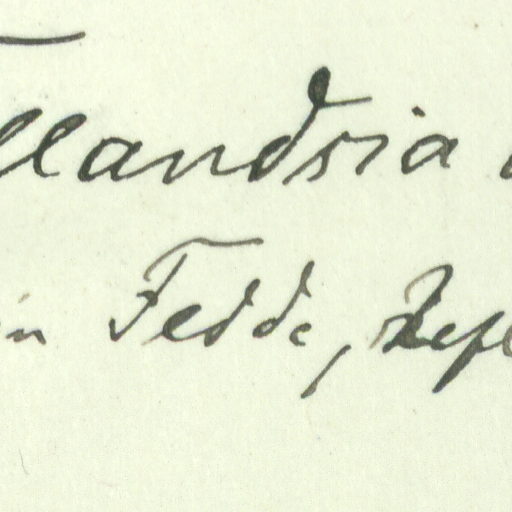 llandsia
in Fedde, Rep